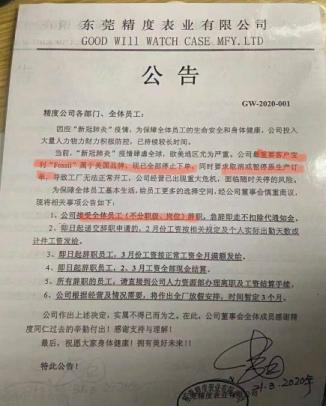 东莞精度表业有限公司
GOOD WILL WATCH CASE MFY.LTD
公 告
GW-2020-001
精度公司各部门、全体员工：
因应“新冠肺炎”疫情，为保障全体员工的生命安全和身体健康，公司投入
大量人力物力财力积极防控，已持续较长时间。
当前，“新冠肺炎”疫情肆虐全球，欧美地区尤为严重。公司最重要客户宝
利“Fossil”属于美国品牌，现已全部停止下单，同时要求取消或暂停原生产订
单，导致工厂无法正常开工，公司经营已出现重大危机，面临随时关停的风险。
为保障全体员工基本生活，给员工更多的选择空间，经公司董事会慎重商议，
现将相关事项公告如下：
1、公司接受全体员工（不分职级、岗位）辞职，急辞即走不扣除代通知金
2、即日起递交辞职申请的，2月份工资按相关规定及个人实际出勤天数或
计件工资发给。
3、即日起辞职员工，3月份工资按正常工资全月满额发给。
4、即日起辞职员工，2、3月工资全部现金结算。
5、所有辞职的员工，请直接到公司人力资源部办理离职及工资结算手续。
6、公司根据经营及情况需要，将作出全厂放假安排，时间暂定3个月。
公司作出上述决定，实属不得已而为之。在此，公司董事会全体成员感谢精
度同仁过去的辛勤付出！感谢支持与理解！
最后，祝愿大家身体健康！拥有美好未来！！
特此公告！
31.3.2020年
东莞精度表业有限公司